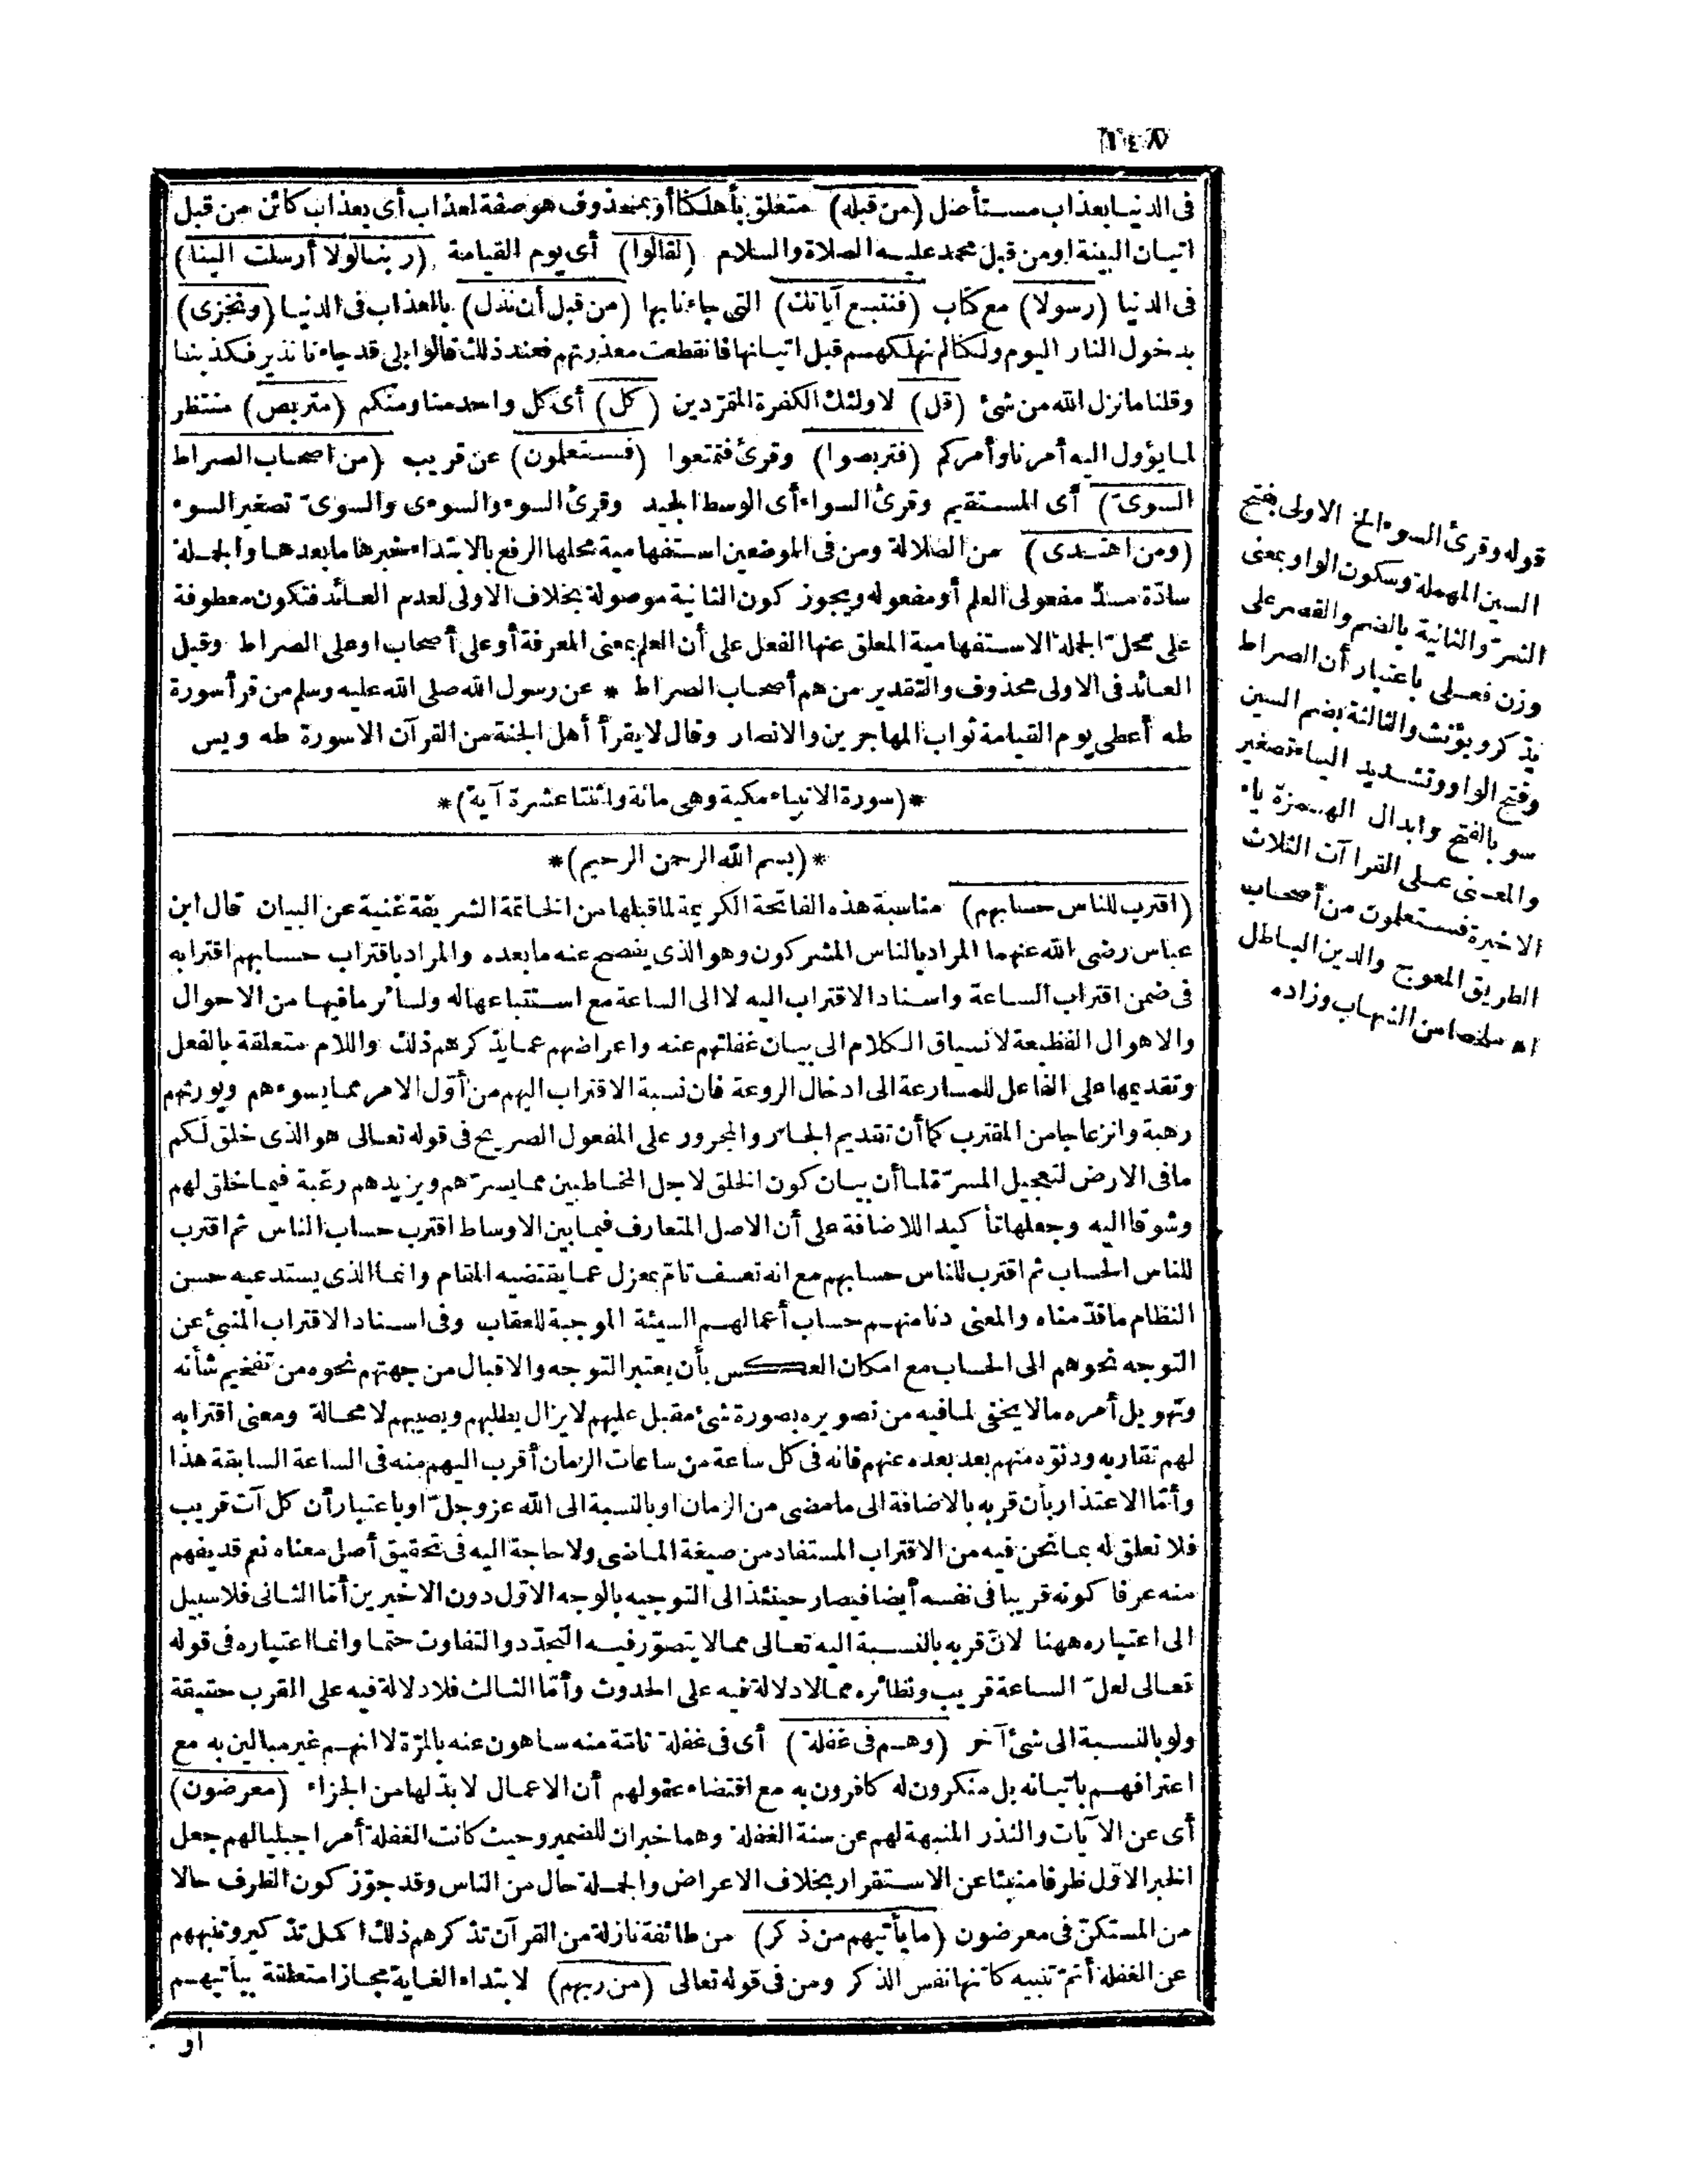 ٣٤٨
فى الدنيا بعذاب مستأصل (من قبله) متعلق بأهلكنا أو بمحذوف هو صفة لعذاب أى بعذاب كائن من قبل
اتيان البينة او من قبل محمد عليه الصلاة والسلام (لقالوا) أى يوم القيامة (ربنا لولا أرسلت الينا)
فى الدنيا (رسولا) مع كتاب (فنتبع آياتك) التى جاءنا بها (من قبل أن نذل) بالعذاب فى الدنيا (ونخزى)
بدخول النار اليوم ولكنا لم نهلكهم قبل اتيانها فانقطعت معذرتهم فعند ذلك قالوا بلى قد جاءنا نذير فكذبنا
وقلنا ما نزل الله من شئ (قل) لاولئك الكفرة المتمرّدين (كل) أى كل واحد منا ومنكم (متربص) منتظر
لما يؤول اليه أمرنا وأمركم (فتربصوا) وقرئ فتمتعوا (فستعلمون) عن قريب (من اصحاب الصراط
السوىّ) أى المستقيم وقرئ السواء أى الوسط الجيد وقرئ السوء والسوءى والسوىّ تصغير السوء
(ومن اهتدى) من الضلالة ومن فى الموضعين استفهامية محلها الرفع بالابتداء خبرها ما بعدها والجملة
سادّة مسدّ مفعولى العلم أو مفعوله ويجوز كون الثانية موصولة بخلاف الاولى لعدم العائد فتكون معطوفة
على محلّ الجملة الاستفهامية المعلق عنها الفعل على أن العلم بمعنى المعرفة أو على أصحاب او على الصراط وقيل
العائد فى الاولى محذوف والتقدير من هم أصحاب الصراط * عن رسول الله صلى الله عليه وسلم من قرأ سورة
طه أعطى يوم القيامة ثواب المهاجرين والانصار وقال لا يقرأ أهل الجنة من القرآن الا سورة طه ويس
*(سورة الانبياء مكية وهى مائة واثنتا عشرة آية)*
*(بسم الله الرحمن الرحيم)*
(اقترب للناس حسابهم) مناسبة هذه الفاتحة الكريمة لما قبلها من الخاتمة الشريفة غنية عن البيان قال ابن
عباس رضى الله عنهما المراد بالناس المشركون وهو الذى يفصح عنه ما بعده والمراد باقتراب حسابهم اقترابه
فى ضمن اقتراب الساعة واسناد الاقتراب اليه لا الى الساعة مع استتباعها له ولسائر ما فيها من الاحوال
والاهوال الفظيعة لانسياق الكلام الى بيان غفلتهم عنه واعراضهم عما يذكرهم ذلك واللام متعلقة بالفعل
وتقديمها على الفاعل للمسارعة الى ادخال الروعة فان نسبة الاقتراب اليهم من أوّل الامر مما يسوءهم ويورثهم
رهبة وانزعاجا من المقترب كما أن تقديم الجارّ والمجرور على المفعول الصريح فى قوله تعالى هو الذى خلق لكم
ما فى الارض لتعجيل المسرّة لما أن بيان كون الخلق لاجل المخاطبين مما يسرّهم ويزيدهم رغبة فيما خلق لهم
وشوقا اليه وجعلها تأكيدا للاضافة على أن الاصل المتعارف فيما بين الاوساط اقترب حساب الناس ثم اقترب
للناس الحساب ثم اقترب للناس حسابهم مع انه تعسف تامّ بمعزل عما يقتضيه المقام وانما الذى يستدعيه حسن
النظام ما قدّمناه والمعنى دنا منهم حساب أعمالهم السيئة الموجبة للعقاب وفى اسناد الاقتراب المنبئ عن
التوجه نحوهم الى الحساب مع امكان العكس بأن يعتبر التوجه والاقبال من جهتهم نحوه من تفخيم شأنه
وتهويل أمره ما لا يخفى لما فيه من تصويره بصورة شئ مقبل عليهم لا يزال يطلبهم ويصيبهم لا محالة ومعنى اقترابه
لهم تقاربه ودنوّه منهم بعد بعده عنهم فانه فى كل ساعة من ساعات الزمان أقرب اليهم منه فى الساعة السابقة هذا
وأمّا الاعتذار بأن قربه بالاضافة الى ما مضى من الزمان او بالنسبة الى الله عز وجلّ او باعتبار أن كل آت قريب
فلا تعلق له بما نحن فيه من الاقتراب المستفاد من صيغة الماضى ولا حاجة اليه فى تحقيق أصل معناه نعم قد يفهم
منه عرفا كونه قريبا فى نفسه أيضا فيصار حينئذ الى التوجيه بالوجه الاوّل دون الاخيرين أمّا الثانى فلا سبيل
الى اعتباره ههنا لانّ قربه بالنسبة اليه تعالى مما لا يتصوّر فيه التجدّد والتفاوت حتما وانما اعتباره فى قوله
تعالى لعلّ الساعة قريب ونظائره مما لا دلالة فيه على الحدوث وأمّا الثالث فلا دلالة فيه على القرب حقيقة
ولو بالنسبة الى شئ آخر (وهم فى غفلة) أى فى غفلة تامّة منه ساهون عنه بالمرّة لا انهم غير مبالين به مع
اعترافهم باتيانه بل منكرون له كافرون به مع اقتضاء عقولهم أن الاعمال لا بدّ لها من الجزاء (معرضون)
أى عن الآيات والنذر المنبهة لهم عن سنة الغفلة وهما خبران للضمير وحيث كانت الغفلة أمرا جبليا لهم جعل
الخبر الاوّل ظرفا منبئا عن الاستقرار بخلاف الاعراض والجملة حال من الناس وقد جوّز كون الظرف حالا
من المستكنّ فى معرضون (ما يأتيهم من ذكر) من طائفة نازلة من القرآن تذكرهم ذلك اكمل تذكير وتنبههم
عن الغفلة أتمّ تنبيه كانها نفس الذكر ومن فى قوله تعالى (من ربهم) لابتداء الغاية مجازا متعلقة بيأتيهم
او
قوله وقرئ السوء الخ الاولى بفتح
السين المهملة وسكون الواو بمعنى
الشرّ والثانية بالضم والقصر على
وزن فعلى باعتبار أن الصراط
يذكر ويؤنث والثالثة بضم السين
وفتح الواو وتشديد الياء تصغير
سو بالفتح وابدال الهمزة ياء
والمعنى على القراآت الثلاث
الاخيرة فستعلمون من أصحاب
الطريق المعوج والدين الباطل
اه ملخصا من الشهاب وزاده